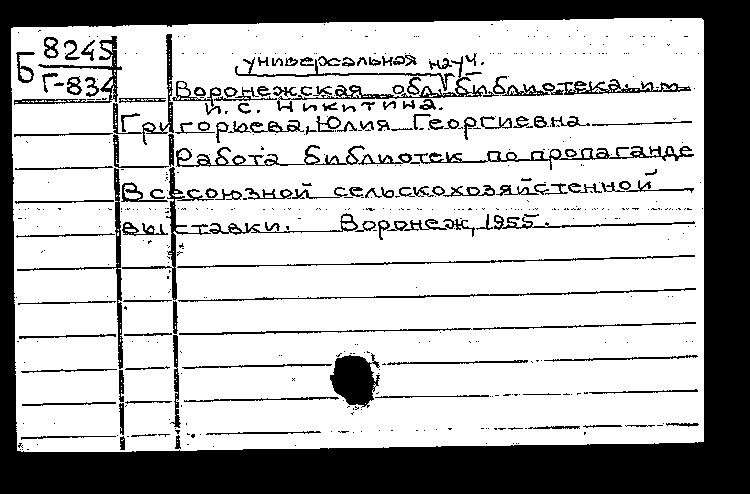 Б 8245
Г-834
универсальная науч.
Воронежская обл. библиотека им.
И. С. Никитина.
Григорьева, Юлия Георгиевна.
Работа библиотек по пропаганде
Всесоюзной сельскохозяйстенной
выставки. Воронеж, 1955.